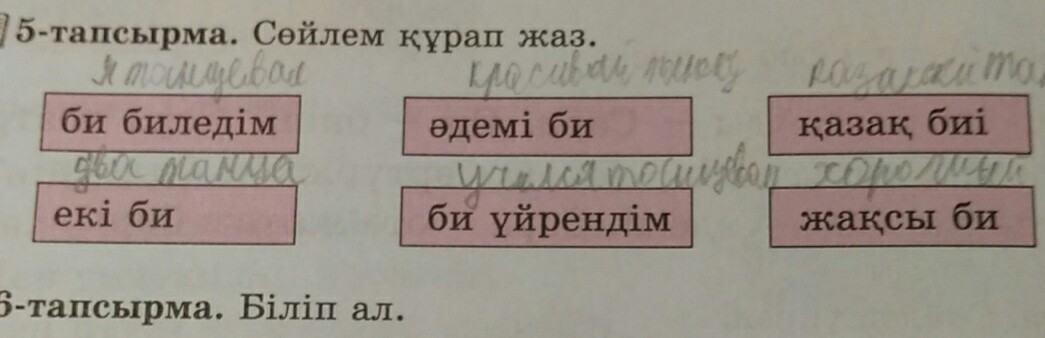 5-тапсырма. Сөйлем құрап жаз.
я танцевал красивый танец казахский та
би биледім әдемі би қазақ биі
два танца учился танцевал хороший
екі би би үйрендім жақсы би
6-тапсырма. Біліп ал.